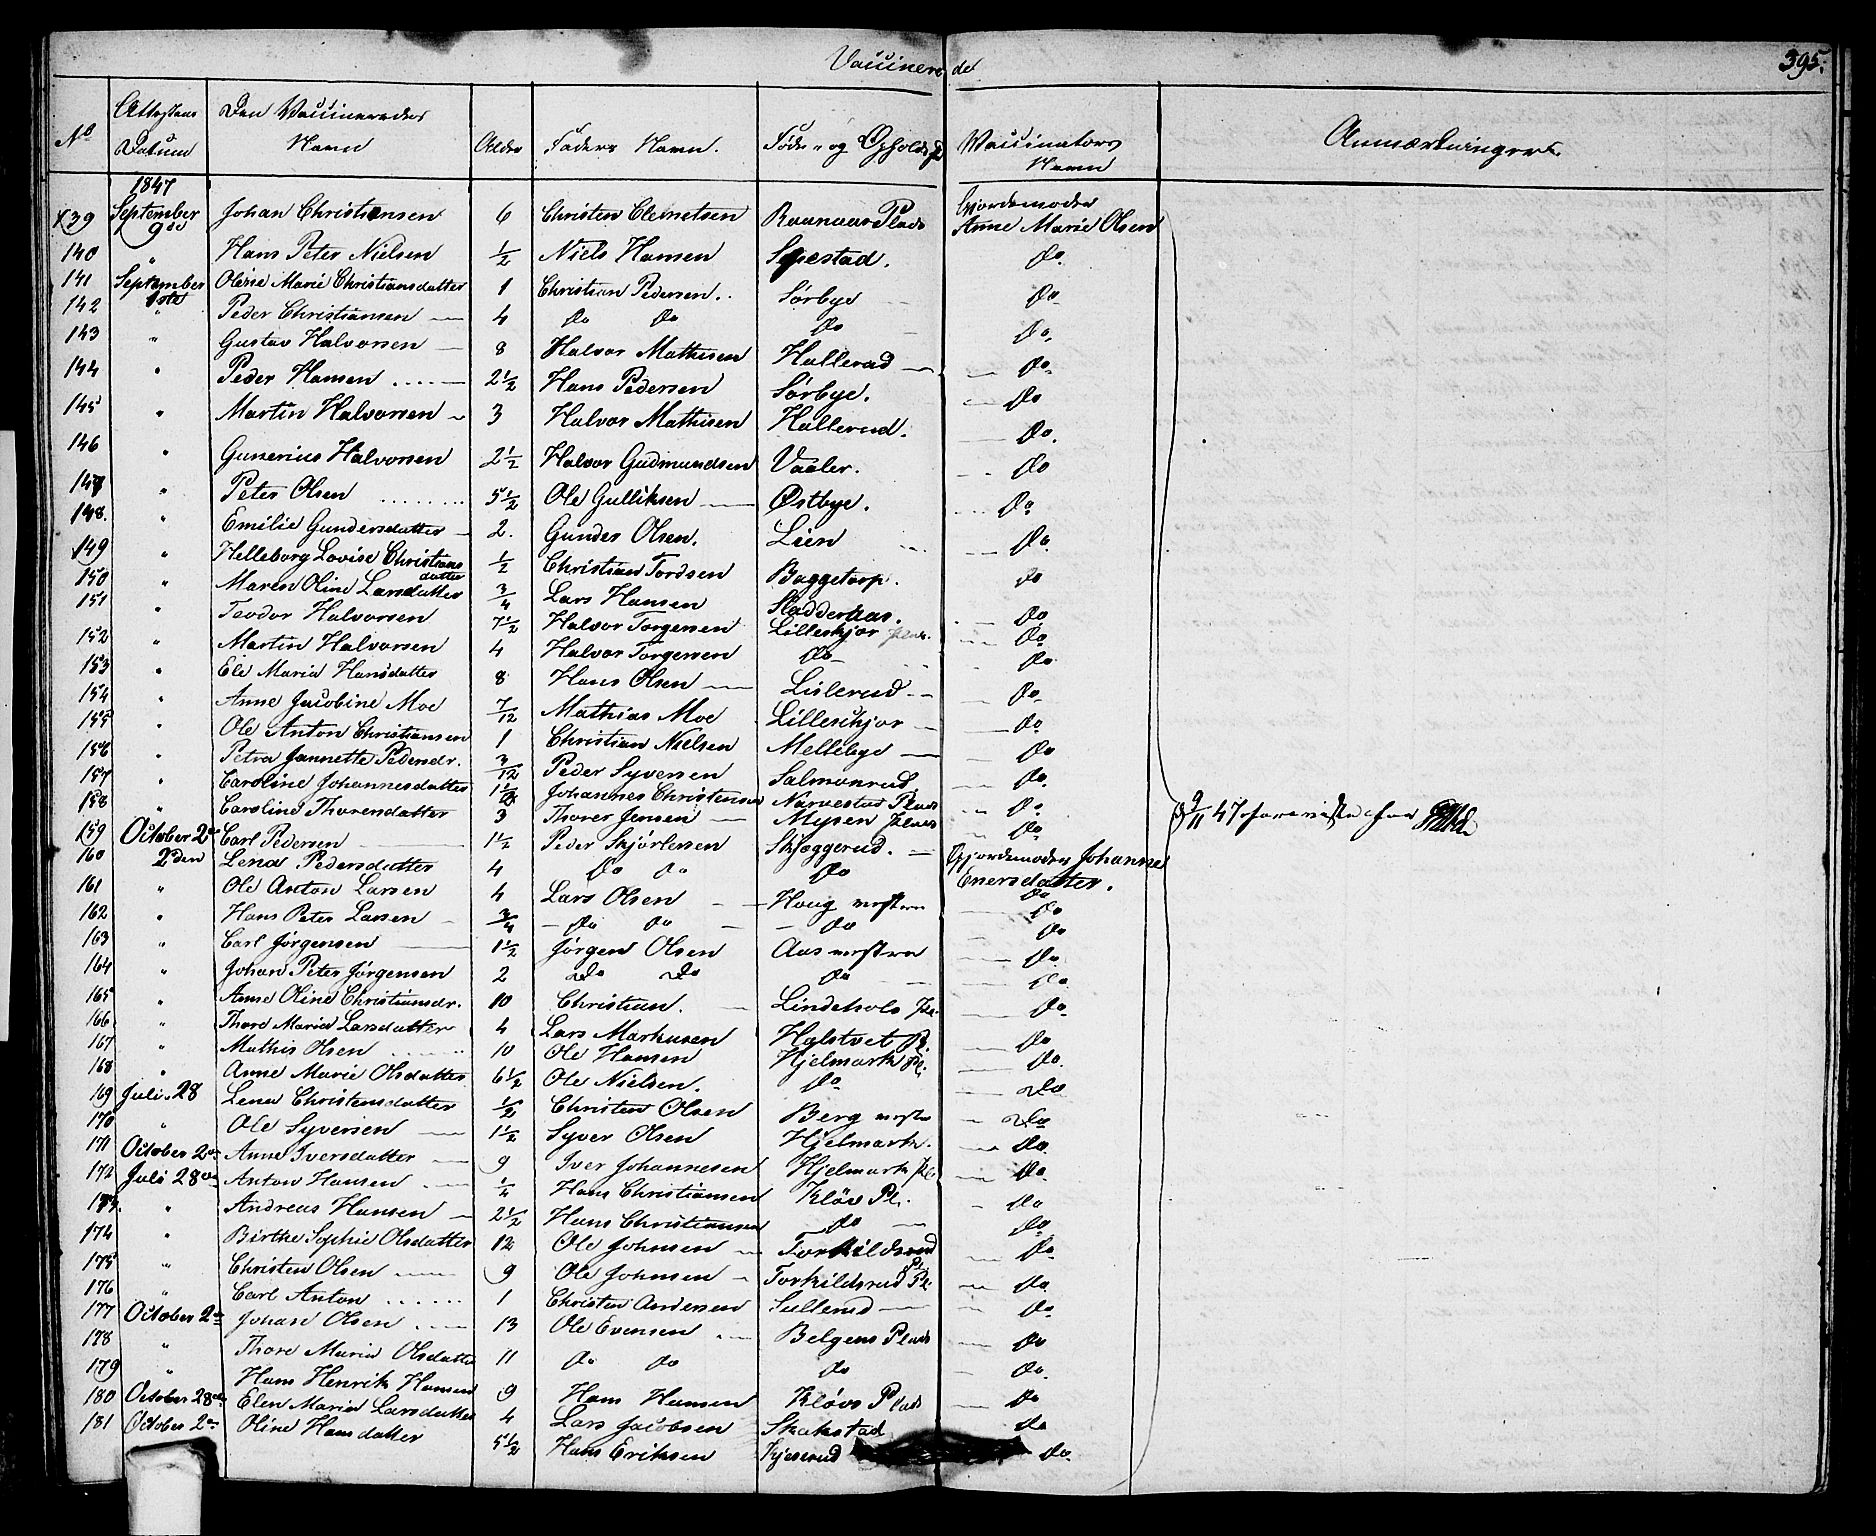 Vaccinerede
395.
No Attestens Datum Den Vaccineredes Navn Alder Faders Navn. Føde- og Opholds Vaccinators Navn Anmærkninger.
1847
139 September 9de Johan Christensen 6 Christen Clemetsen Raanaas Plads Gjordemoder Anne Marie Olsen
140 " Hans Peter Nielsen 1/2 Niels Hansen Spestad. Do.
141 September Olene Marie Christiansdatter 1 Christian Pedersen. Sørbye Do
142 " Peder Christiansen 4 Do Do Do Do.
143 " Gustav Halvorsen 8 Halvor Mathisen Hallerud Do.
144 " Peder Hansen 2 1/2 Hans Pedersen Sørbye. Do
145 " Martin Halvorsen 3 Halvor Mathisen Hallerud. Do.
146 " Gunerius Halvorsen 2 1/2 Halvor Gudmundsen Vaaler. Do
147 " Peter Olsen 5 1/2 Ole Gulliksen Østbye. Do
148. " Emilie Gundersdatter 2. Gunder Olsen. Lien Do.
149 " Helleborg Lovise Christiansdatter 1/2 Christian Tordsen Baggetorp. Do
150 " Maren Oline Larsdatter 3/4 Lars Hansen Sladderaas. Do
151 " Teodor Halvorsen 7 1/2 Halvor Torgersen Lilleskjør Plads. Do
152 " Martin Halvorsen 4 Halvor Torgersen Do Do
153 " Ele Maria Hansdatter 8 Hans Olsen Lislerud Do
154 " Anne Jacobine Moe 7/12 Mathias Moe Lilleskjør Do
155 " Ole Anton Christiansen 1 Christian Nielsen Mellebye Do
156 " Petra Jannette Pedersdr. 3/12 Peder Syversen Salmonrud Do.
157 " Caroline Johannesdatter 1 1/2 Johannes Christensen Narvestad Plads Do.
158 " Caroline Thorersdatter 3 Thorer Jensen Mysen Plads Do
159 October 2den Carl Pedersen 1 1/2 Peder Skjørtersen Skjæggerud. Gjordemoder Johanne Enersdatter.
160 2den Lena Pedersdatter 4 Do Do Do Do
161 " Ole Anton Larsen 4 Lars Olsen Houg vestre Do
162 " Hans Peter Larsen 3/4 Do Do Do Do
163 " Carl Jørgensen 1 1/2 Jørgen Olsen Aas vestre Do
164 " Johan Peter Jørgensen 2 Do Do Do Do
165 " Anne Oline Christiansdr. 10 Christian. Lindehols Pl. Do
166 " Thore Maria Larsdatter 4 Lars Markusen Halstvet Pl. Do
167 " Mathis Olsen 10 Ole Hansen Hjelmark Pl. Do.
168 " Anne Marie Olsdatter 6 1/2 Ole Nielsen. Do Do
169 Juli 28 Lena Christensdatter 1/2 Christen Olsen Berg vestre Do
170 " Ole Syversen 1 1/2 Syver Olsen Hjelmark. Do.
171 October 2den Anne Iversdatter 9 Iver Johannesen Hjelmark Pl. Do.
172 Juli 28de Anton Hansen 1/4 Hans Christiansen Kløv Pl. Do
173. " Andreas Hansen 2 1/2 Hans Christiansen Do Do
174 " Birthe Sophie Olsdatter 12 Ole Johnsen Torkildsrud Do
175 " Christen Olsen 9 Ole Johnsen Torkildsrud Pl. Do
176 " Carl Anton 1 Christen Andersen Sullerud Do
177 October 2den Johan Olsen 13 Ole Evensen Belgens Plads Do
178 " Thore Maria Olsdatter 11 Do Do Do Do.
179 " Hans Henrik Hansen 9 Hans Hansen Kløvs Plads Do
180 October 28de Elen Maria Larsdatter 4 Lars Jacobsen Skakstad Do
181 October 2den Oline Hansdatter 5 1/2 Hans Eriksen Kjeserud Do.
9/11 47